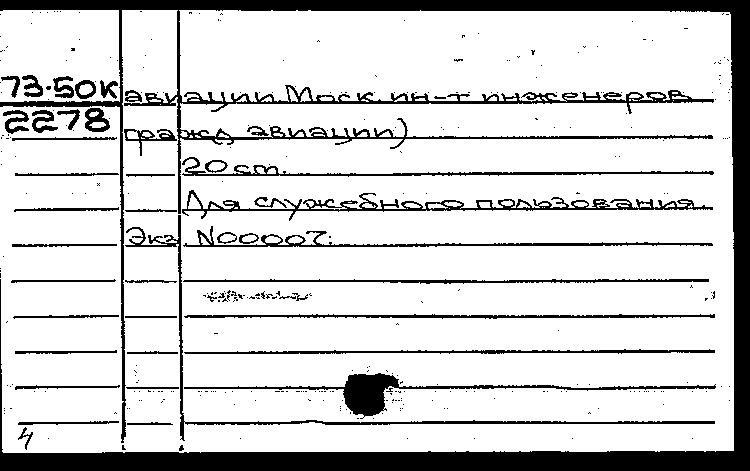 73-50к авиации. Моск. ин-т инженеров
2278 гражд. авиации)
20 cm.
Для служебного пользования.
Экз. N00007.
4